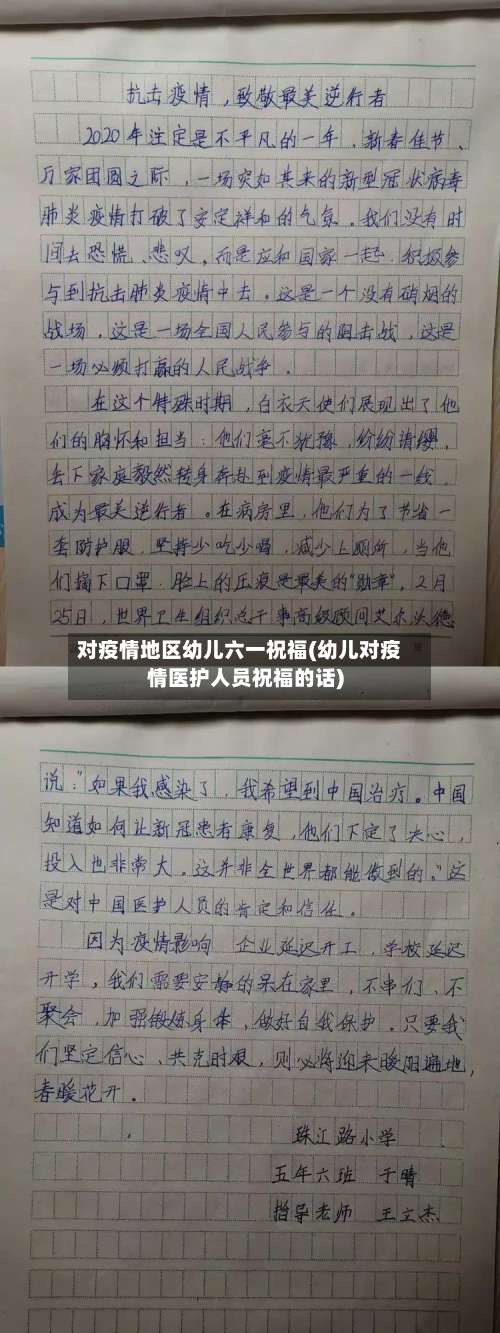 抗击疫情，致敬最美逆行者
2020年注定是不平凡的一年，新春佳节、
万家团圆之际，一场突如其来的新型冠状病毒
肺炎疫情打破了安定祥和的气氛。我们没有时
间去恐慌、悲叹，而是应和国家一起，积极参
与到抗击肺炎疫情中去。这是一个没有硝烟的
战场，这是一场全国人民参与的阻击战，这是
一场必须打赢的人民战争。
在这个特殊时期，白衣天使们展现出了他
们的胸怀和担当：他们毫不犹豫，纷纷请缨，
舍下家庭毅然转身奔赴到疫情最严重的一线，
成为最美逆行者。在病房里，他们为了节省一
套防护服，坚持少吃少喝，减少上厕所，当他
们摘下口罩，脸上的压痕是最美的"勋章"。2月
25日，世界卫生组织总干事高级顾问艾尔沃德
对疫情地区幼儿六一祝福(幼儿对疫
情医护人员祝福的话)
说："如果我感染了，我希望到中国治疗。中国
知道如何让新冠患者康复，他们下定了决心，
投入也非常大。这并非全世界都能做到的。"这
是对中国医护人员的肯定和信任。
因为疫情影响 企业延迟开工，学校延迟
开学，我们需要安静的呆在家里，不串门、不
聚会，加强锻炼身体，做好自我保护。只要我
们坚定信心、共克时艰，则必将迎来暖阳遍地，
春暖花开。
珠江路小学
五年六班 于晴
指导老师 王立杰